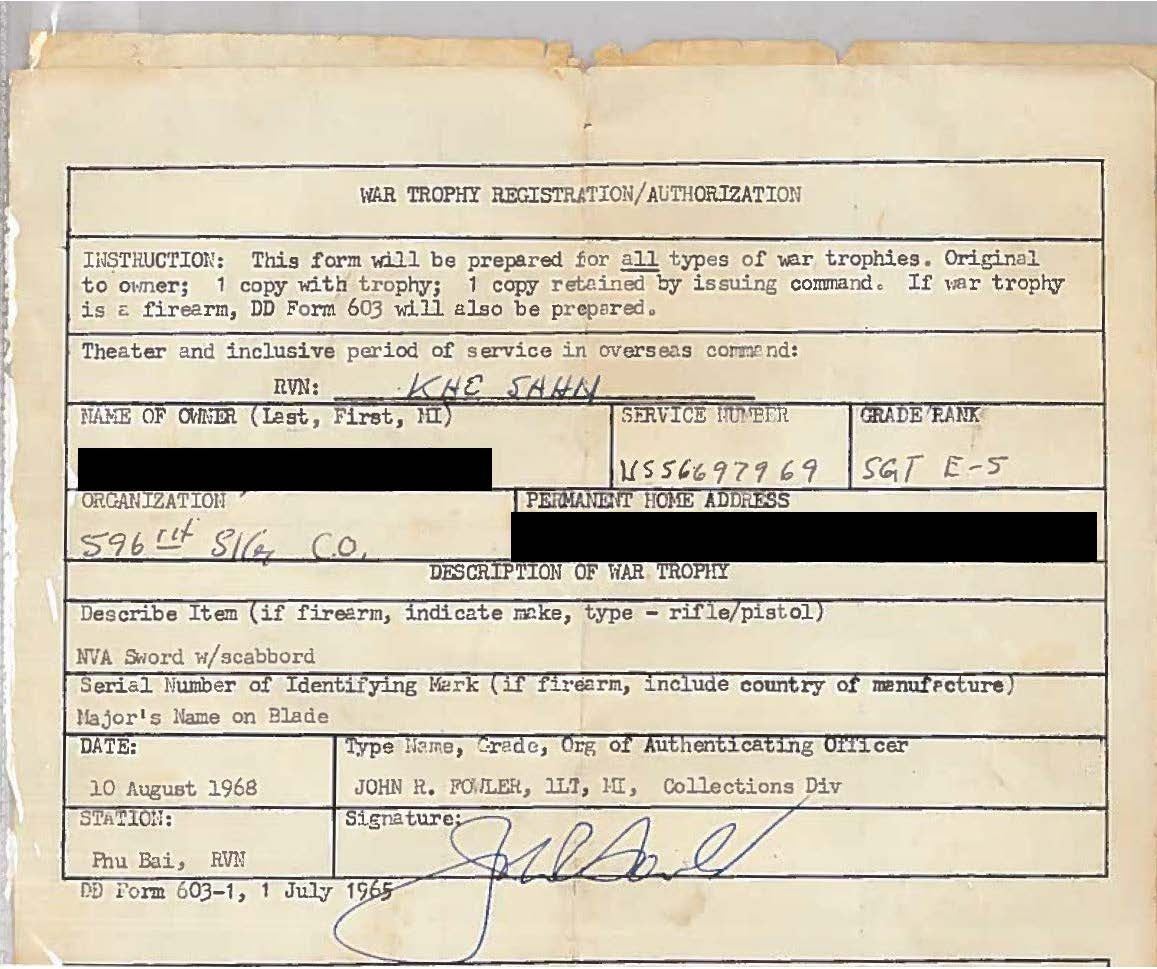 WAR TROPHY REGISTRATION/AUTHORIZATION
INSTRUCTION: This form will be prepared for all types of war trophies. Original
to owner; 1 copy with trophy; 1 copy retained by issuing command. If war trophy
is a firearm, DD Form 603 will also be prepared.
Theater and inclusive period of service in overseas command:
RVN: KHE SAHN
NAME OF OWNER (Last, First, MI) SERVICE NUMBER GRADE/RANK
US56697969 SGT E-5
ORGANIZATION PERMANENT HOME ADDRESS
596 SIG CO.
DESCRIPTION OF WAR TROPHY
Describe Item (if firearm, indicate make, type - rifle/pistol)
NVA Sword w/scabbord
Serial Number of Identifying Mark (if firearm, include country of manufacture)
Major's Name on Blade
DATE: Type Name, Grade, Org of Authenticating Officer
10 August 1968 JOHN R. FOWLER, 1LT, MI, Collections Div
STATION: Signature:
Phu Bai, RVN
DD Form 603-1, 1 July 1965